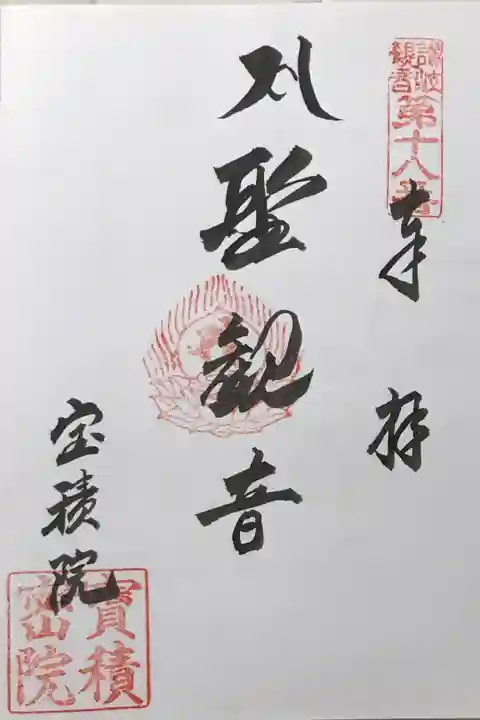 讃岐
観音
第十八番
奉拝
聖観音
宝積院
寶積
密院